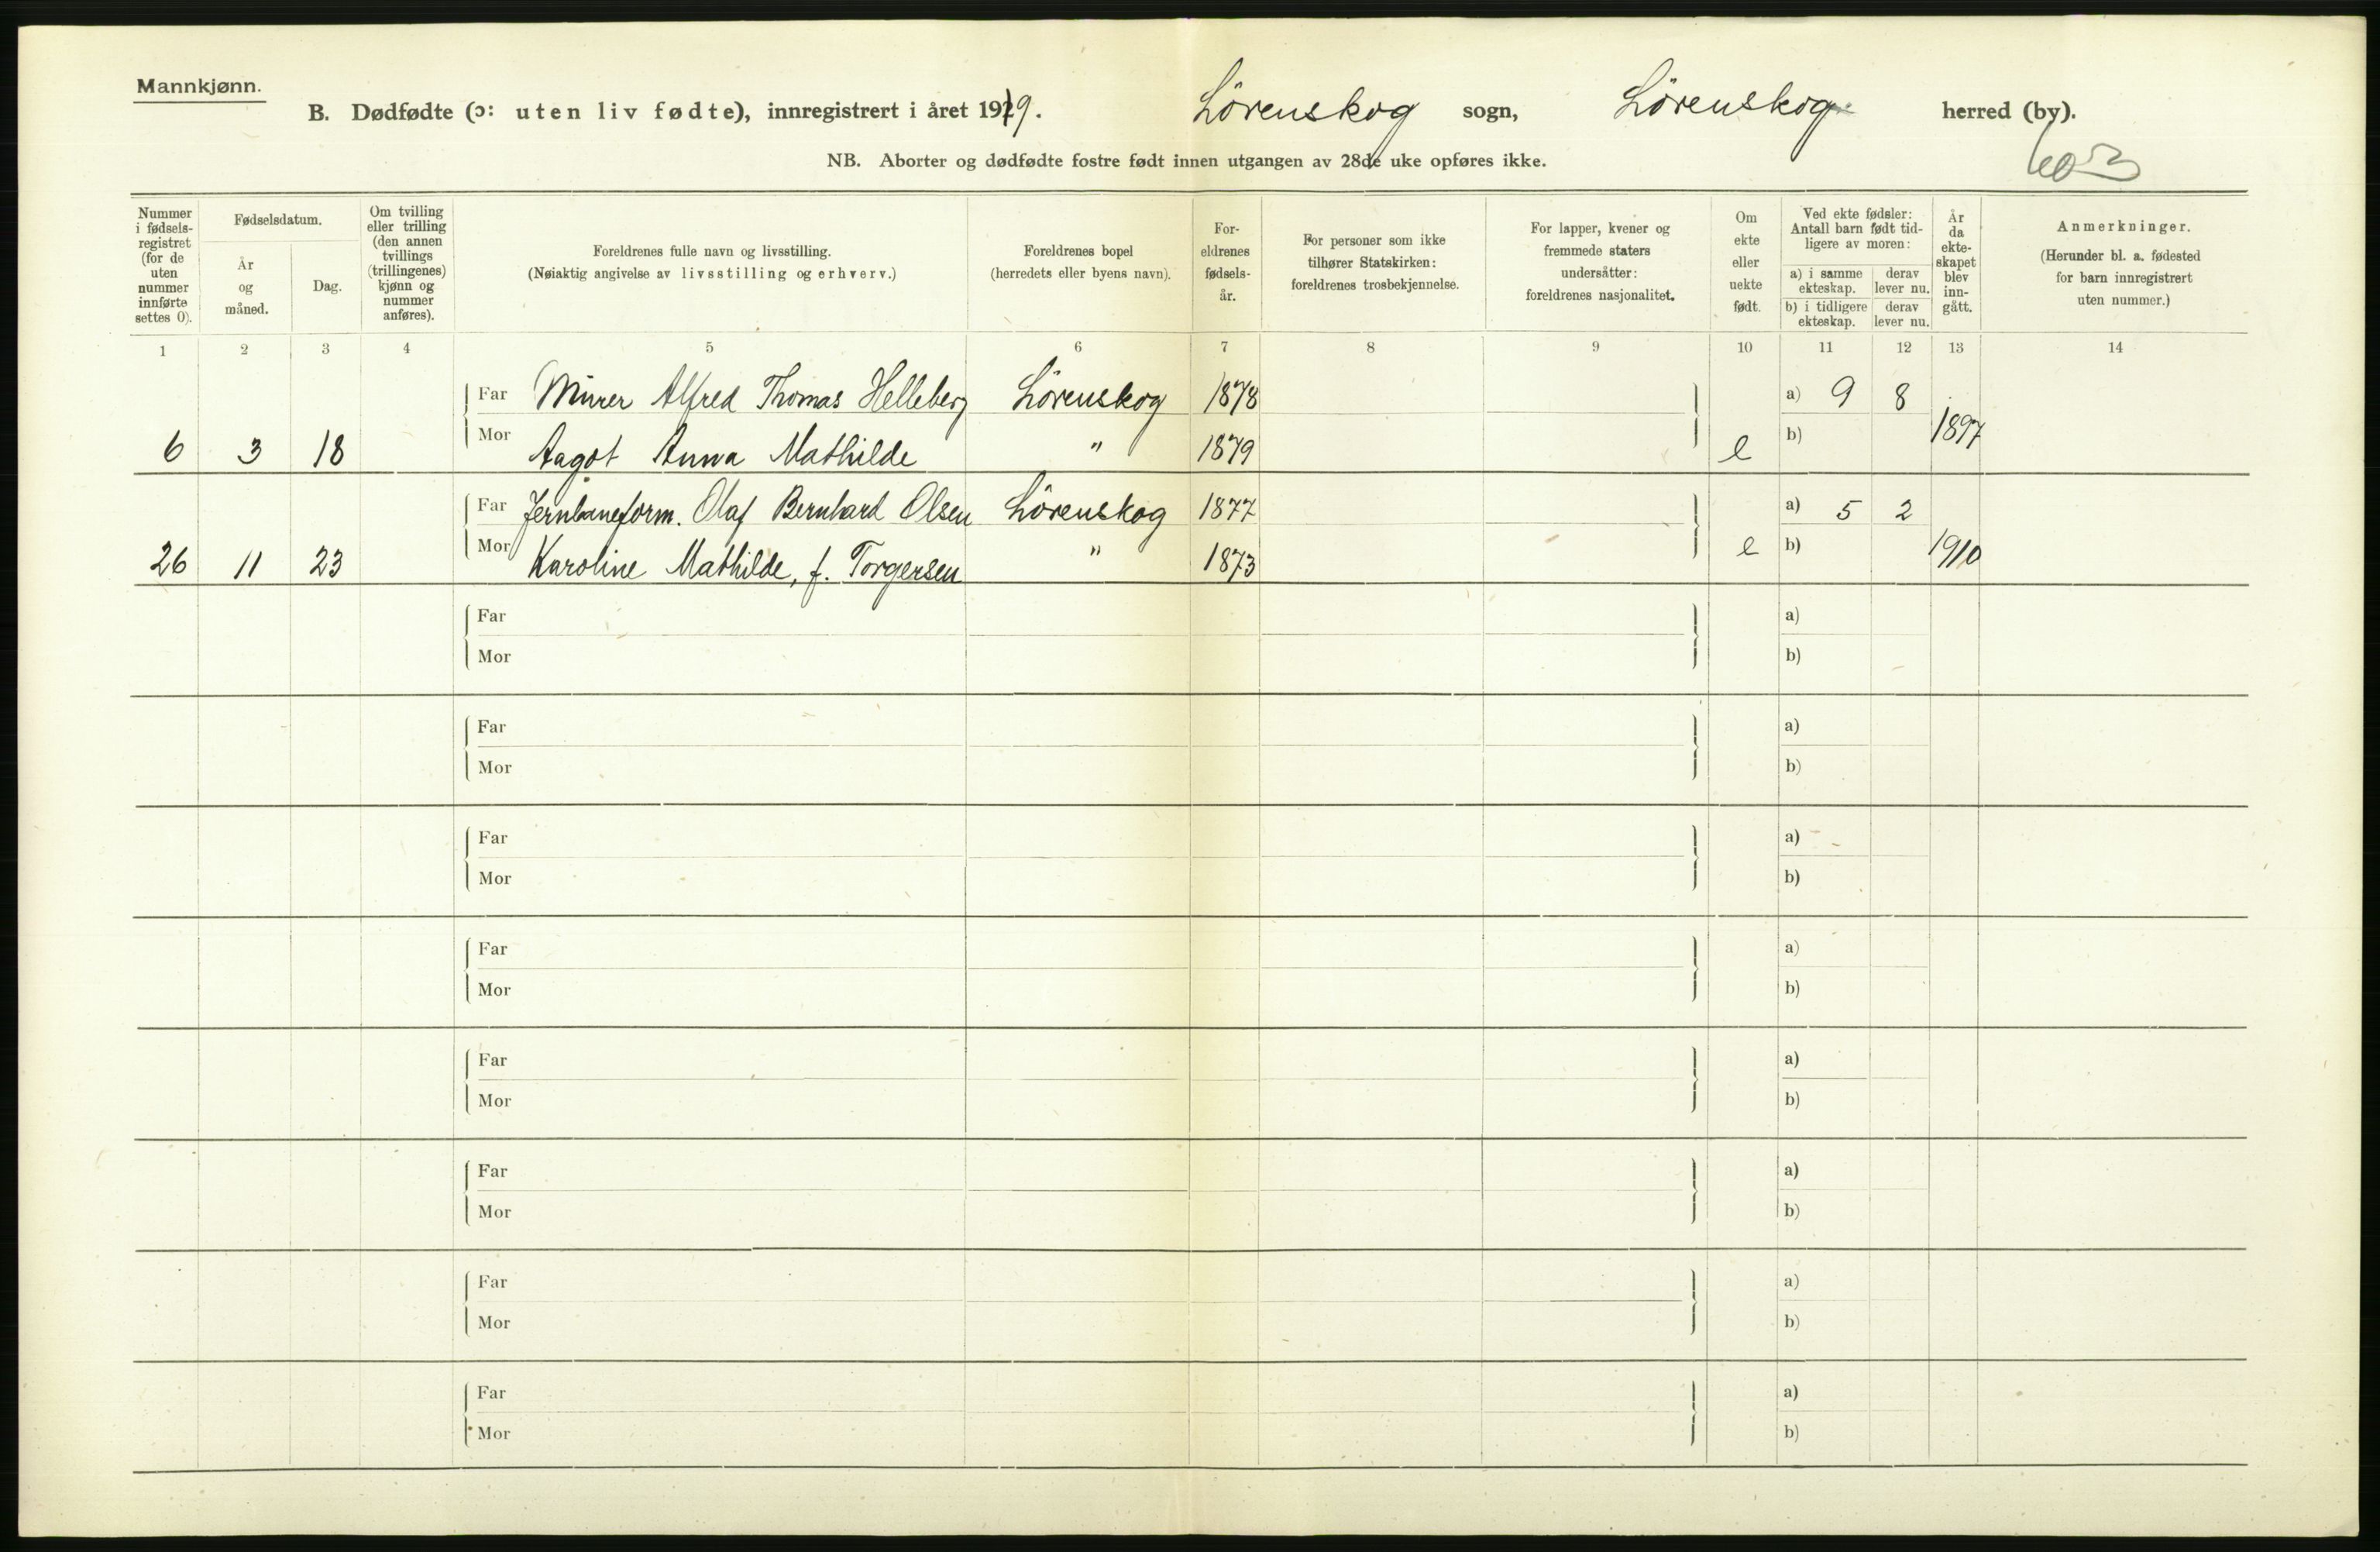 Mannkjønn.
B. Dødfødte (ɔ: uten liv fødte), innregistrert i året 1919. Lörenskog sogn, Lörenskog herred (by).
NB. Aborter og dødfødte fostre født innen utgangen av 28de uke opføres ikke.
Nummer i fødsels-registret (for de uten nummer innførte settes 0).
Fødselsdatum.
År og måned.
Dag.
Om tvilling eller trilling (den annen tvillings (trillingenes) kjønn og nummer anføres).
Foreldrenes fulle navn og livsstilling.
(Nøiaktig angivelse av livsstilling og erhverv.)
Foreldrenes bopel
(herredets eller byens navn).
For-eldrenes fødsels-år.
For personer som ikke tilhører Statskirken: foreldrenes trosbekjennelse.
For lapper, kvener og fremmede staters undersåtter: foreldrenes nasjonalitet.
Om ekte eller uekte født.
Ved ekte fødsler: Antall barn født tid-ligere av moren:
a) i samme ekteskap. derav lever nu.
b) i tidligere ekteskap. derav lever nu.
År da ekte-skapet blev inn-gått.
Anmerkninger.
(Herunder bl. a. fødested for barn innregistrert uten nummer.)
1 2 3 4 5 6 7 8 9 10 11 12 13 14
Far Murer Alfred Thomas Helleberg Lörenskog 1878 a) 9 8
6 3 18 Mor Aagot Anna Mathilde " 1879 e b) 1897
Far Jernbaneform. Olaf Bernhard Olsen Lörenskog 1877 a) 5 2
26 11 23 Mor Karoline Mathilde, f. Torgersen " 1873 e b) 1910
Far a)
Mor b)
Far a)
Mor b)
Far a)
Mor b)
Far a)
Mor b)
Far a)
Mor b)
Far a)
Mor b)
Far a)
Mor b)
Far a)
Mor b)